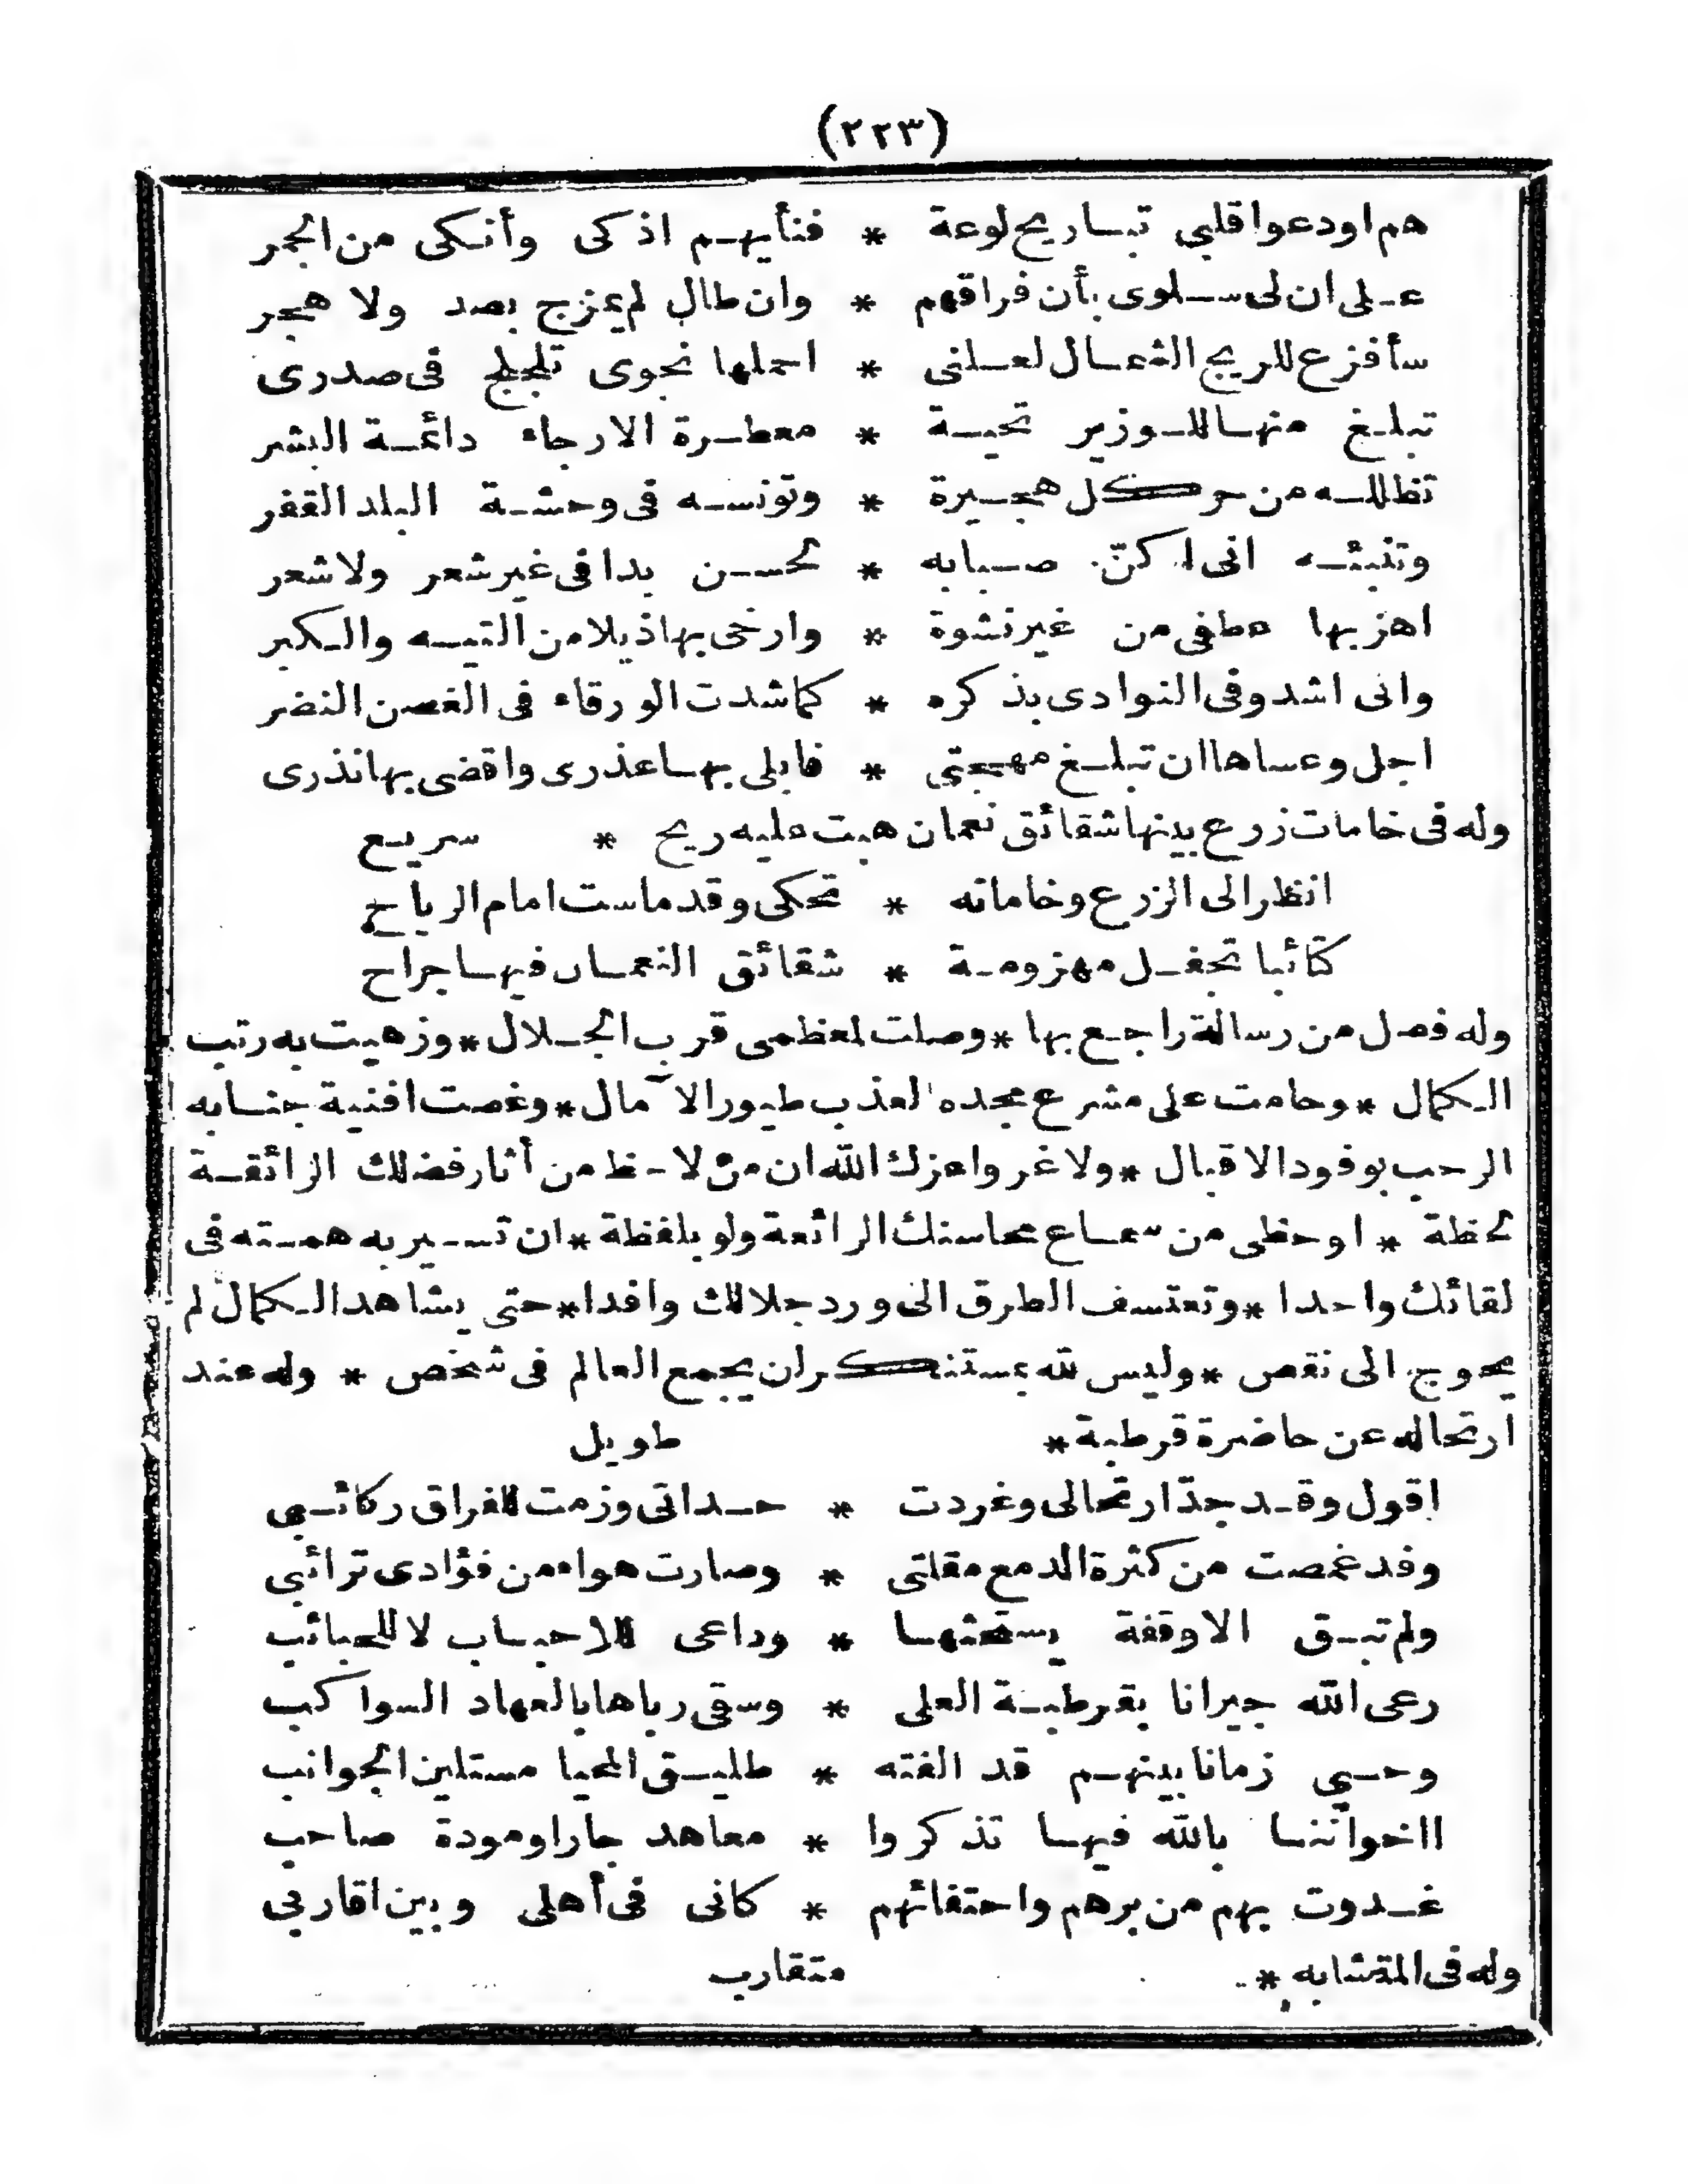 (٢٢٣)
هم اودعوا قلبي تباريح لوعة * فنأيهم اذكى وأنكى من الجمر
على ان لى سلوى بأن فراقهم * وان طال لم يمزج بصد ولا هجر
سأفزع للريح الشمال لعلنى * احملها نجوى تلجلج فى صدرى
تبلغ منها للوزير تحية * معطرة الارجاء دائمة البشر
تظلله من حر كل هجيرة * وتونسه فى وحشة البلد القفر
وتنبئه انى اكنّ صبابه * تحسن بدا فى غير شعر ولا شعر
اهز بها عطفى من غير نشوة * وارخى بها ذيلا من التيه والكبر
وانى اشدو فى النوادى بذكره * كما شدت الورقاء فى الغصن النضر
اجل وعساها ان تبلغ مهجتى * فابلى بها عذرى واقضى بها نذرى
وله فى خامات زرع بينها شقائق نعمان هبت عليه ريح * سريع
انظر الى الزرع وخاماته * تحكى وقد ماست امام الرياح
كتائبا تجفل مهزومة * شقائق النعمان فيها جراح
وله فصل من رسالة راجع بها * وصلت لمعظمى قرب الجلال * وزهيت به رتب
الكمال * وحامت على مشرع مجده العذب طيور الآمال * وغصت افنية جنابه
الرحب بوفود الاقبال * ولا غرو اعزك الله ان من لاحظ من أثار فضلك الرائقة
لحظة * او حظى من سماع محاسنك الرائعة ولو بلفظة * ان تسير به همته فى
لقائك واحدا * وتعتسف الطرق الى ورد جلالك وافدا * حتى يشاهد الكمال لم
يحوج الى نقص * وليس لله بمستنكر ان يجمع العالم فى شخص * وله عند
ارتحاله عن حاضرة قرطبة * طويل
اقول وقد جدّ ارتحالى وغردت * حداتى وزمت للفراق ركائبي
وفد غمصت من كثرة الدمع مقلتى * وصارت هواء من فؤادى ترائبي
ولم تبق الا وقفة يستحثها * وداعى للاحباب لا للحبائب
رعى الله جيرانا بقرطبة العلى * وسقى رباها بالعهاد السواكب
وحيي زمانا بينهم قد الفته * طليق المحيا مستلين الجوانب
ااخواننا بالله فيها تذكروا * معاهد جار او مودة صاحب
غدوت بهم من برهم واحتفائهم * كانى فى أهلى وبين اقاربي
وله فى المتشابه * متقارب